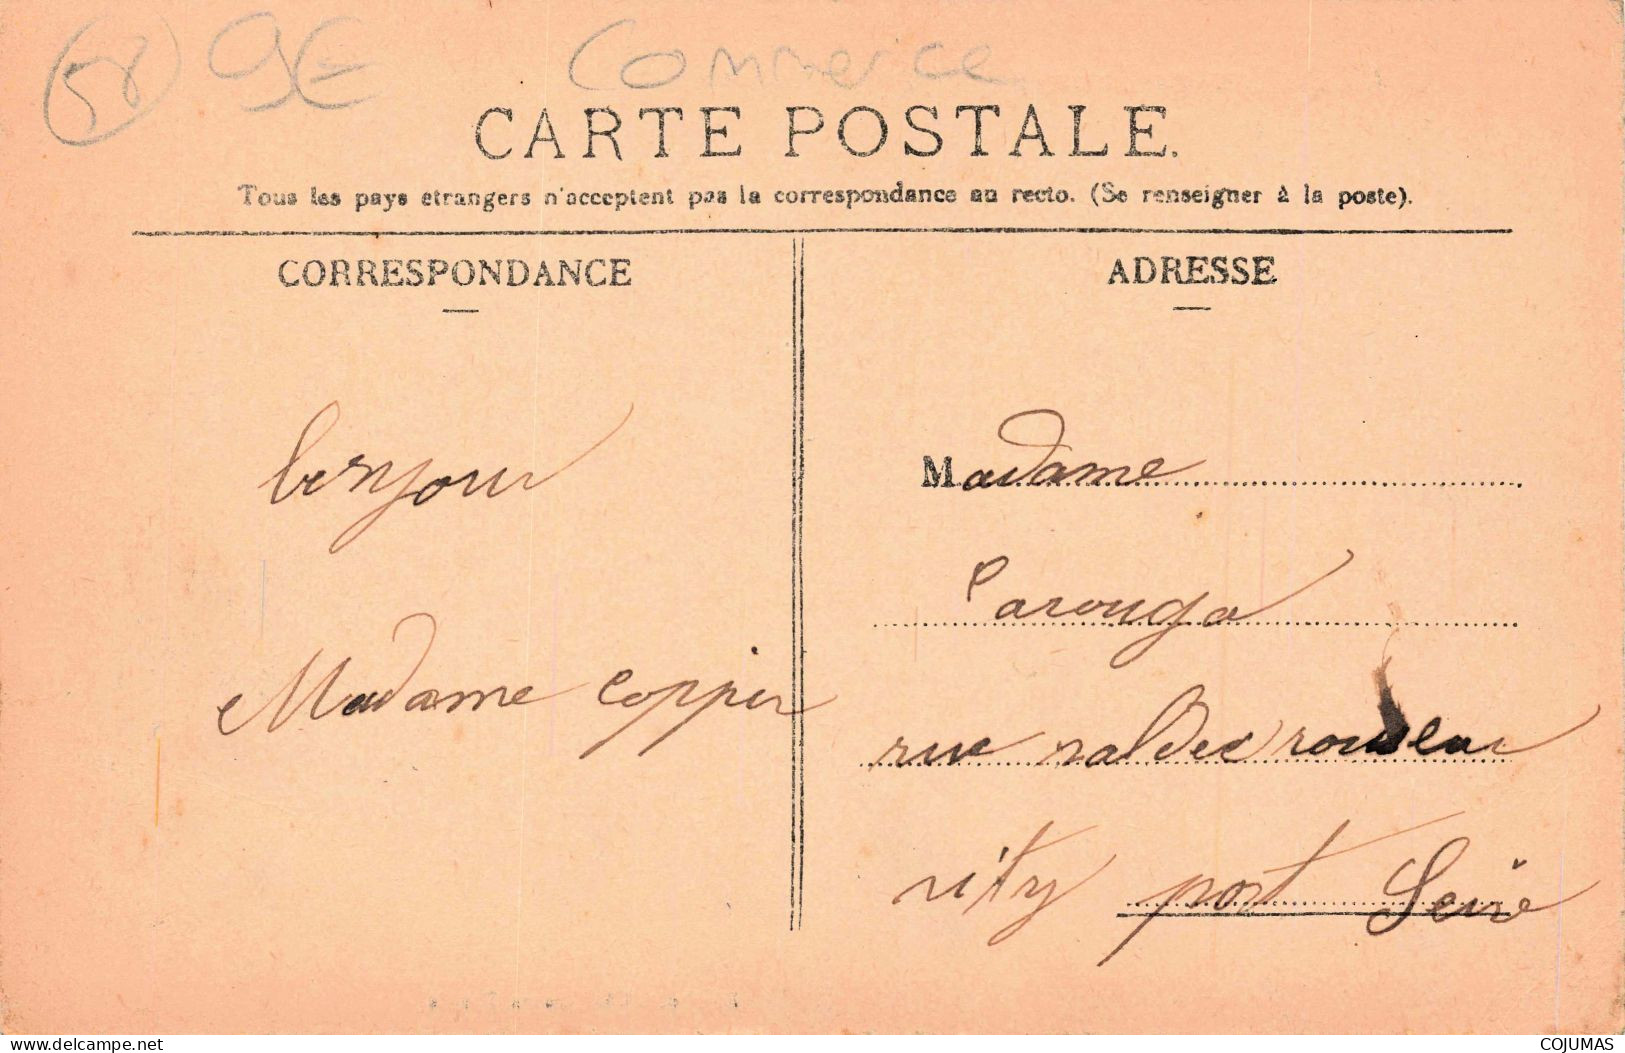 58 9€ Commerce
CARTE POSTALE.
Tous les pays etrangers n'acceptent pas la correspondance au recto. (Se renseigner à la poste).
CORRESPONDANCE
ADRESSE
bonjour
Madame Coppin
Madame
Carouga
rue valdec rousseau
vitry port Seine
delcampe.net
COJUMAS